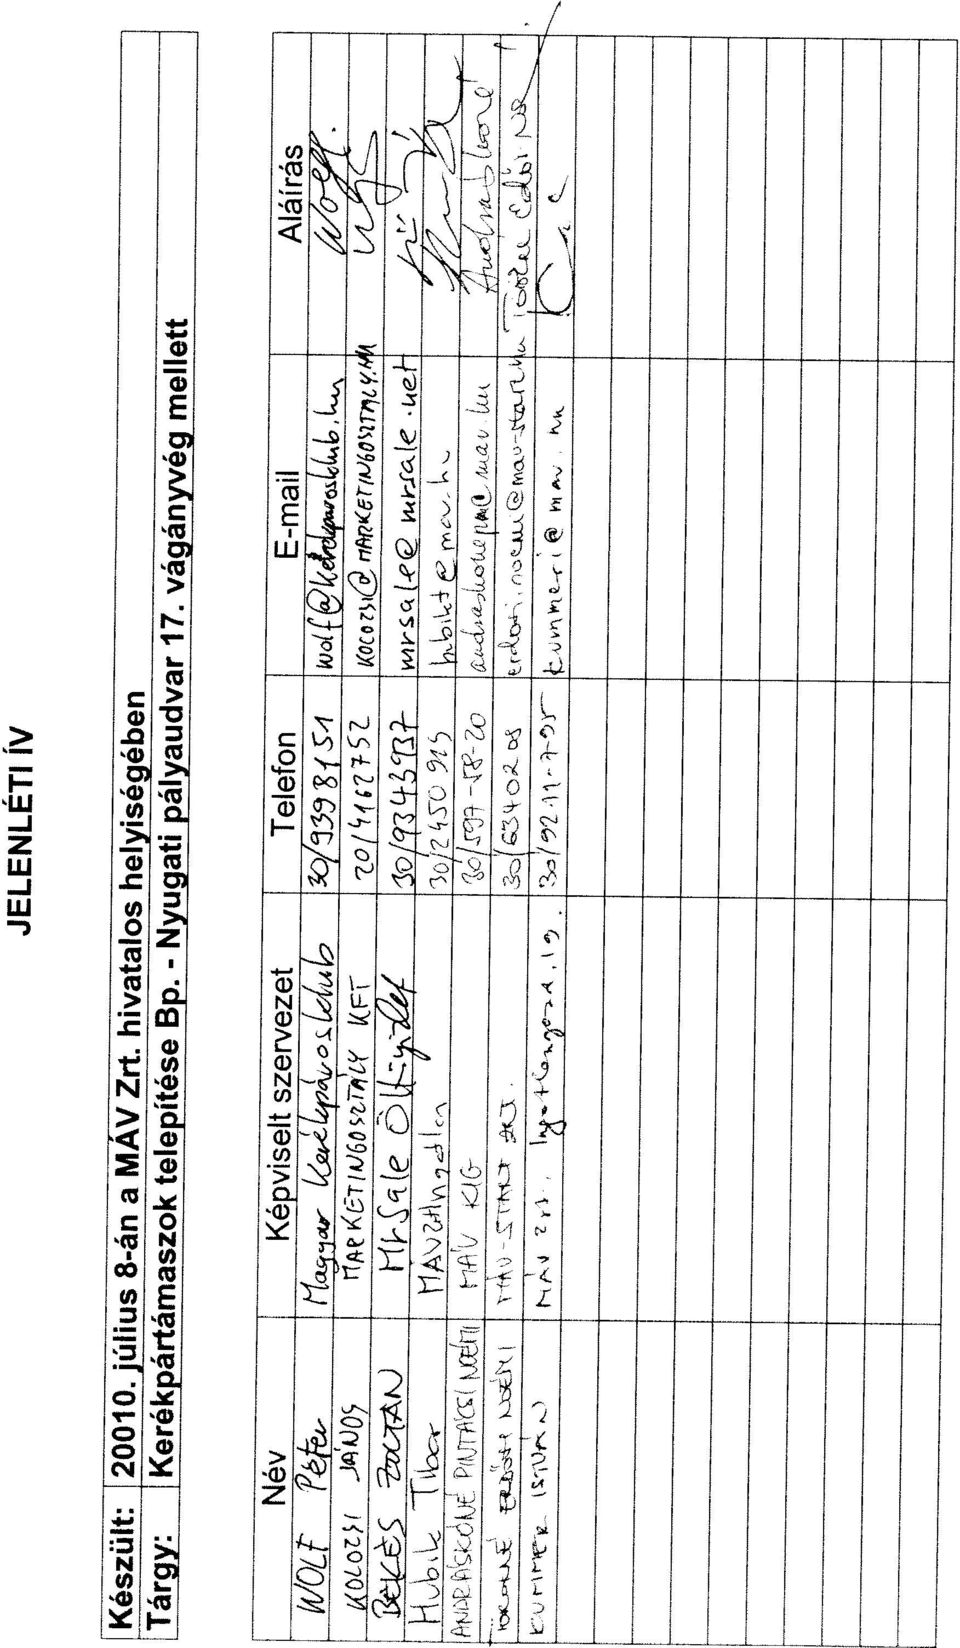 JELENLÉTI ÍV
Készült: 20010. július 8-án a MÁV Zrt. hivatalos helyiségében
Tárgy: Kerékpártámaszok telepítése Bp. - Nyugati pályaudvar 17. vágányvég mellett
Név Képviselt szervezet Telefon E-mail Aláírás
WOLF Péter Magyar Kerékpárosklub 30/9398151 Wolf.
KOLOZSI JÁNOS MARKETINGOSZTÁLY KFT 20/4167752 KOLOZSI@MARKETINGOSZTALY.HU
BÉKÉS ZOLTÁN MrSale 30/9343937 mrsale@mrsale.net
Hubik Tibor MÁV 30/2450 915 hubikt@mav.hu
ANDRÁSKÓNÉ PINTÁCSI NOÉMI MÁV KIG 30/597-58-20 Andráskóné
ERDŐSI NOÉMI MÁV-START ZRT. 30/6340208 erdosi.noemi@mav-start.hu
KUMMER ISTVÁN MÁV Zrt. 30/92-11-795 kummeri@mav.hu